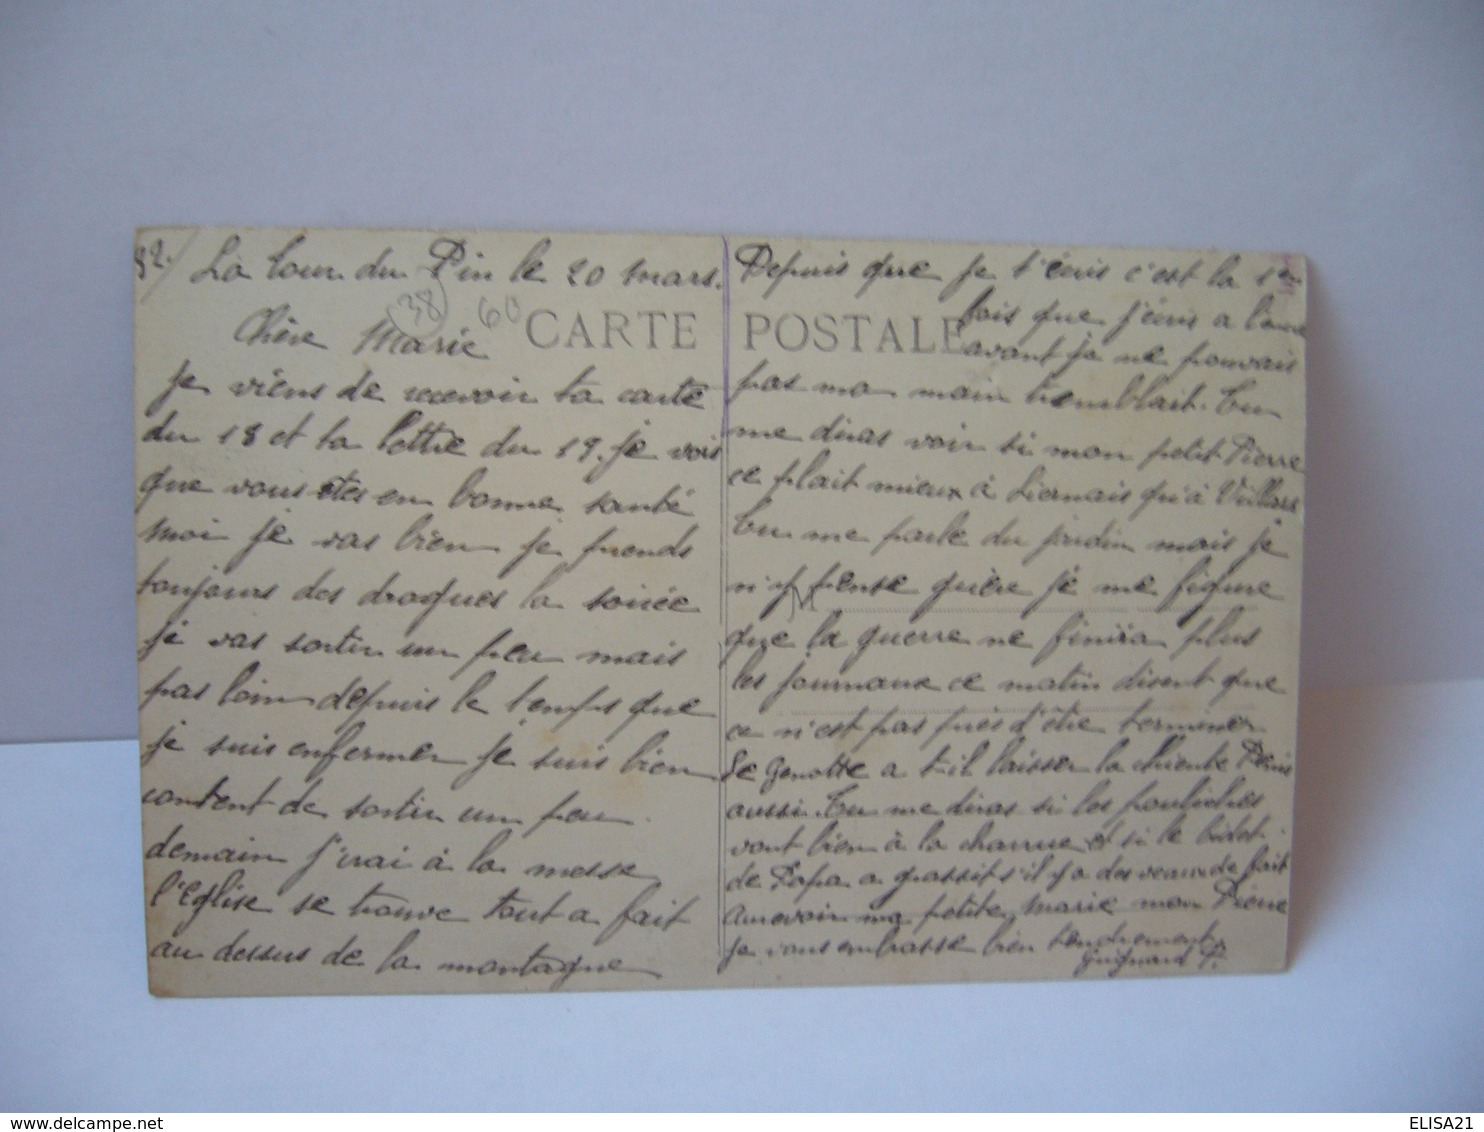 82./ La tour du Pin le 20 mars.
38 60
CARTE POSTALE
Chère Marie
Je viens de recevoir ta carte
du 18 et ta lettre du 19. je vois
que vous êtes en bonne santé
moi je vas bien je prends
toujours des drogues la soirée
je vas sortir un peu mais
pas loin depuis le temps que
je suis enfermer je suis bien
content de sortir un peu.
demain j'irai à la messe
l'Eglise se trouve tout a fait
au dessus de la montagne
Depuis que je t'écris c'est la 1er
fois que j'écris a l'encre
avant je ne pouvais
pas ma main tremblait. Tu
me diras voir si mon petit Pierre
ce plait mieux à Liernais qu'à Villars
Tu me parle du jardin mais je
n'y pense guère je me figure
que la guerre ne finira plus
les journaux ce matin disent que
ce n'est pas près d'être terminer
Le Genotte a t-il laisser la chiente Denis
aussi. Tu me diras si les pouliches
vont bien à la charrue et si le bidet
de Papa a grossit s'il y a des veaux de fait
Aurevoir ma petite Marie mon Pierre
je vous embrasse bien tendrement
Guignard P.
ELISA21
delcampe.net